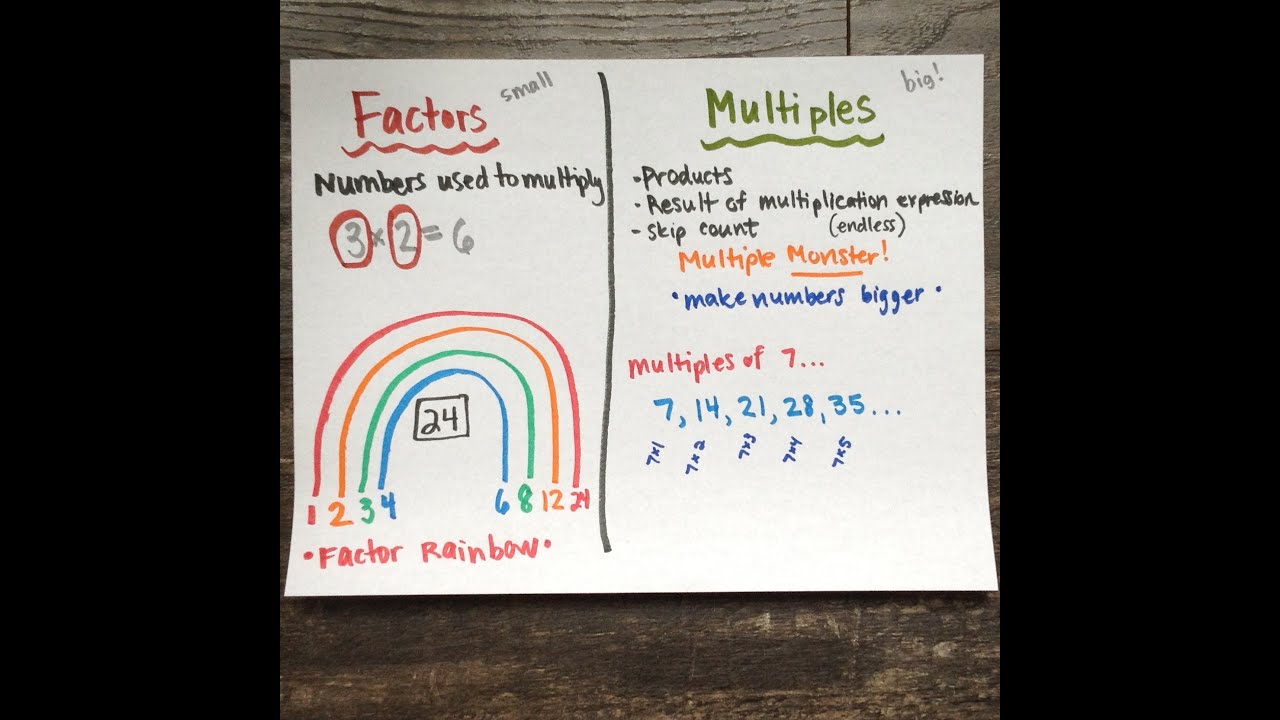 Factors
small
Numbers used to multiply
3 x 2 = 6
24
1 2 3 4 6 8 12 24
• Factor Rainbow •
Multiples
big!
- Products
- Result of multiplication expression
- skip count (endless)
Multiple Monster!
• make numbers bigger •
multiples of 7...
7, 14, 21, 28, 35...
7x1 7x2 7x3 7x4 7x5